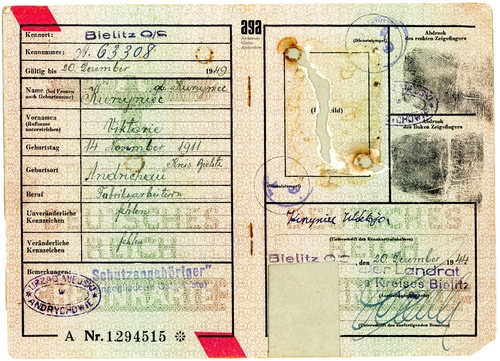 Kennort: Bielitz O/S
Kennummer: A. 63308
Gültig bis 20 Dezember 1949
Name (bei Frauen auch Geburtsname) Kurzyniec
Vornamen (Rufname unterstreichen) Viktorie
Geburtstag 14 November 1911
Geburtsort Andrichau Kreis Bielitz
Beruf Fabriksarbeiterin
Unveränderliche Kennzeichen fehlen
Veränderliche Kennzeichen fehlen
Bemerkungen: "Schutzangehöriger"
ANDRYCHOWIE
A Nr. 1294515
aga
(Dienststempel)
Abdruck des rechten Zeigefingers
Abdruck des linken Zeigefingers
(Unterschrift des Kennkarteninhabers)
Bielitz O/S, den 20 Dezember 1944
Der Landrat
s Kreises Bielitz
(Unterschrift des ausfertigenden Beamten)